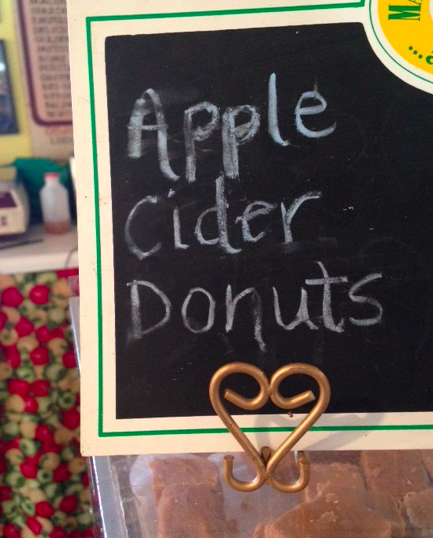 Apple
Cider
Donuts